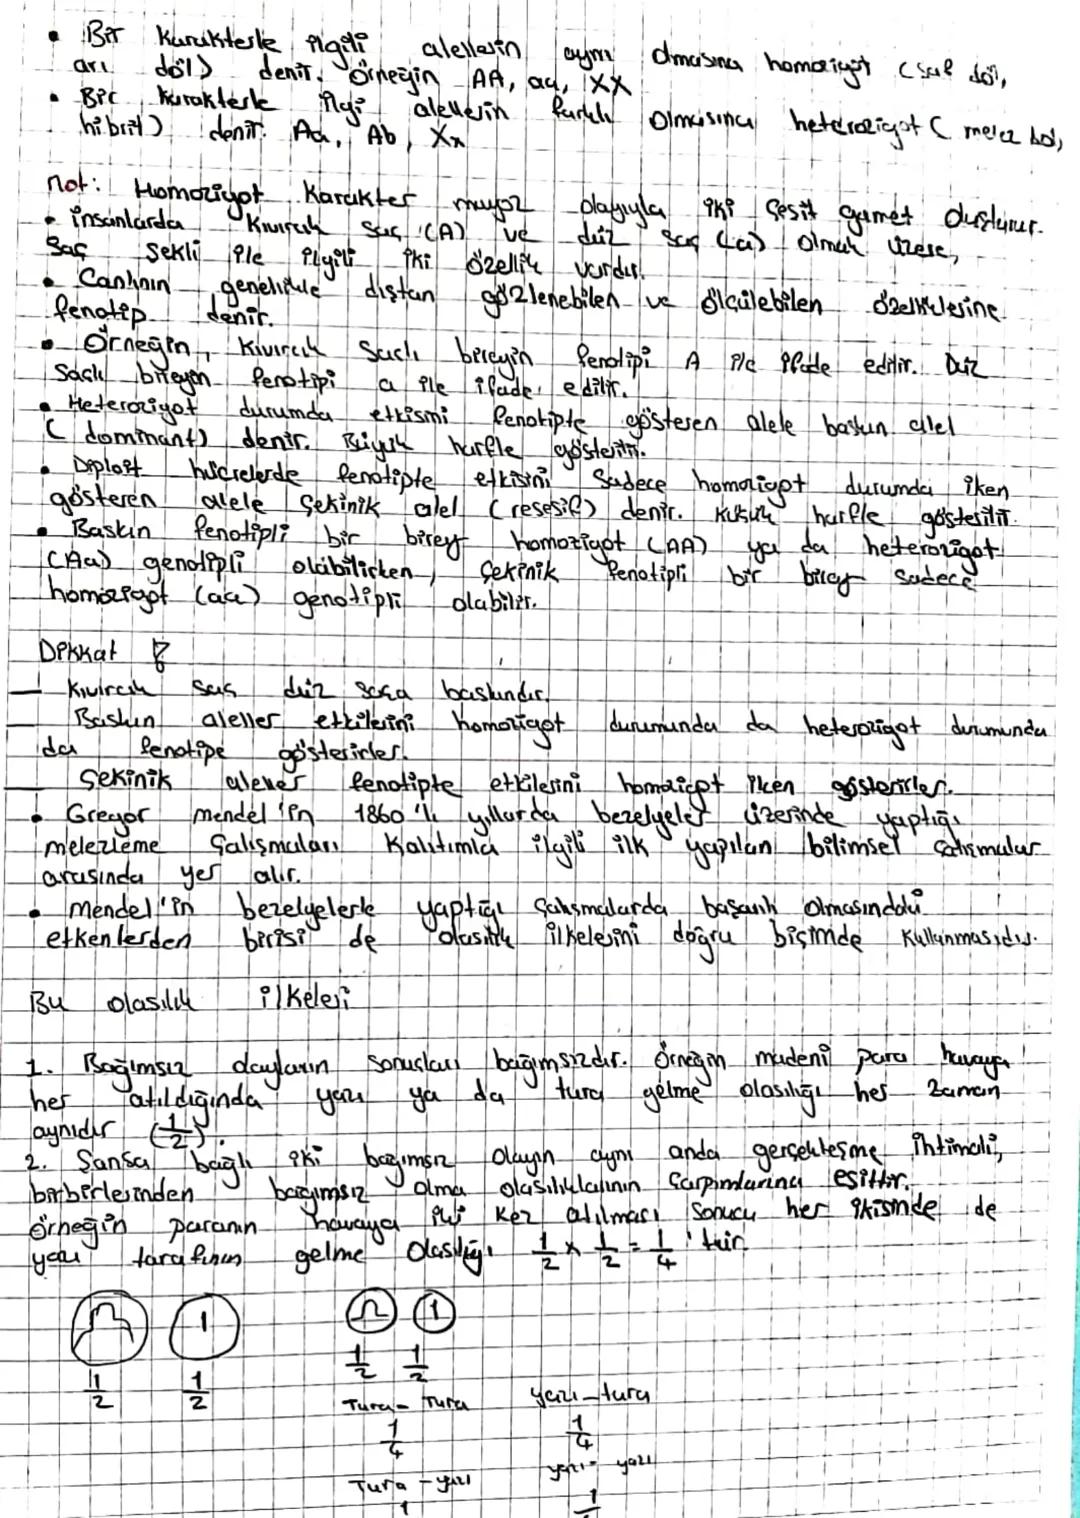 • Bir Karakterle ilgili alellerin aynı olmasına homozigot (saf döl,
arı döl) denir. Örneğin AA, aa, XX
• Bir karakterle ilgi alellerin farklı olmasına heterozigot ( melez döl,
hibrit) denir. Aa, Ab, Xx
not: Homozigot Karakter mayoz olayıyla iki çeşit gamet oluşturur.
• insanlarda Kıvırcık saç (A) ve düz saç (a) olmak üzere,
saç şekli ile ilgili iki özellik vardır.
• Canlının genellikle dıştan gözlenebilen ve ölçülebilen özelliklerine
fenotip denir.
• Örneğin, Kıvırcık saçlı bireyin fenotipi A ile ifade edilir. Düz
saçlı bireyin fenotipi a ile ifade edilir.
• Heterozigot durumda etkisini fenotipte gösteren alele baskın alel
( dominant) denir. Büyük harfle gösterilir.
• Diploit hücrelerde fenotipte etkisini sadece homozigot durumda iken
gösteren alele çekinik alel (resesif) denir. Küçük harfle gösterilir.
• Baskın fenotipli bir birey homozigot (AA) ya da heterozigot
(Aa) genotipli olabilirken, çekinik fenotipli bir birey sadece
homozigot (aa) genotipli olabilir.
Dikkat !
— Kıvırcık saç düz saça baskındır.
— Baskın aleller etkilerini homozigot durumunda da heterozigot durumunda
da fenotipe gösterirler.
— Çekinik aleller fenotipte etkilerini homozigot iken gösterirler.
• Gregor mendel'in 1860'lı yıllarda bezelyeler üzerinde yaptığı
melezleme Çalışmaları Kalıtımla ilgili ilk yapılan bilimsel çalışmalar
arasında yer alır.
• mendel'in bezelyelerle yaptığı çalışmalarda başarılı olmasındaki
etkenlerden birisi de olasılık ilkelesini doğru biçimde kullanmasıdır.
Bu olasılık ilkeleri
1. Bağımsız olayların sonuçları bağımsızdır. Örneğin madeni para havaya
her atıldığında yazı ya da tura gelme olasılığı her zaman
aynıdır (1/2).
2. Şansa bağlı iki bağımsız olayın aynı anda gerçekleşme ihtimali,
birbirlerinden bağımsız olma olasılıklarının çarpımlarına eşittir.
Örneğin paranın havaya iki kez atılması sonucu her ikisinde de
yazı tarafının gelme olasılığı 1/2 x 1/2 = 1/4 'tür.
1 1
1/2 1/2 1/2 1/2
Tura - Tura yazı - tura
1/4 1/4
Tura - yazı yazı - yazı
1 1